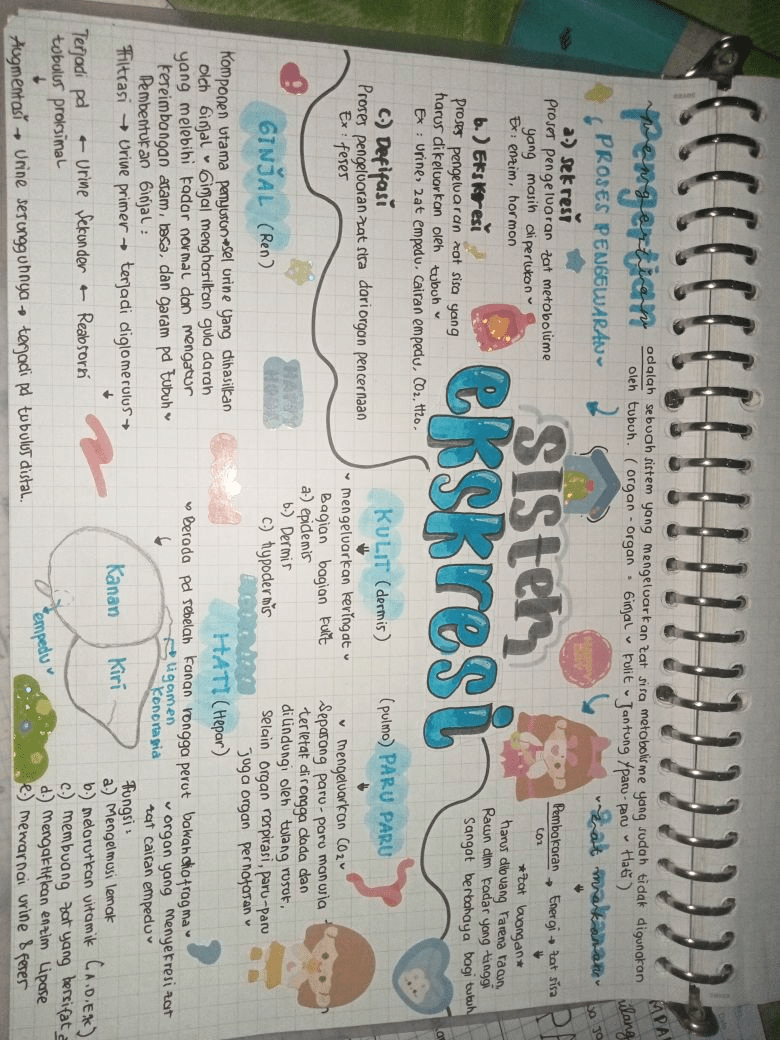 Pengertian
adalah sebuah sistem yang mengeluarkan zat sisa metabolisme yang sudah tidak digunakan
oleh tubuh. (organ-organ = Ginjal ♥ Kulit ♥ Jantung / paru-paru ♥ Hati)
PROSES PENGELUARAN
a) sekresi
Proses pengeluaran zat metabolisme
yang masih diperlukan
Ex: enzim, hormon
b.) Ekskresi
Proses pengeluaran zat sisa yang
harus dikeluarkan oleh tubuh
Ex : urine, zat empedu, cairan empedu, CO2, H2O.
c.) Defifasi
Proses pengeluaran zat sisa dari organ pencernaan
Ex : feses
sistem
ekskresi
zat makanan
Pembakaran → Energi → zat sisa
↓
CO2
*zat buangan*
harus dibuang karena racun,
Racun dlm kadar yang tinggi
sangat berbahaya bagi tubuh
GINJAL (Ren)
Komponen utama penyusun sel urine yang dihasilkan
oleh Ginjal ♥ Ginjal menghasilkan gula darah
yang melebihi kadar normal dan mengatur
kereimbangan asam, basa, dan garam pd tubuh ♥
Pembentukan Ginjal :
Filtrasi → Urine primer → terjadi diglomerulus →
↓
Terjadi pd ← Urine Sekunder ← Reabsorsi
tubulus proksimal
↓
Augmentasi → Urine sesungguhnya → terjadi pd tubulus distal.
KULIT (dermis)
↓
♥ mengeluarkan keringat ♥
Bagian bagian kulit
a) epidemis
b.) Dermis
c) hypodermis
(pulmo) PARU PARU
↓
♥ mengeluarkan CO2 ♥
Sepasang paru-paru manusia
terletak di rongga dada dan
dilindungi oleh tulang rusuk,
selain organ respirasi, paru-paru
juga organ pernafasan ♥
HATI (Hepar)
♥ Berada pd sebelah kanan rongga perut bakan diafragma ♥
♥ organ yang menyekresi zat
zat cairan empedu ♥
Kanan
Kiri
empedu
ligamen
Fungsi :
a) Mengelmusi lemak
b.) melarutkan vitamik (A, D, E, K)
c.) membuang zat yang bersifat
d.) mengaktifkan enzim Lipase
e.) mewarnai urine & feses